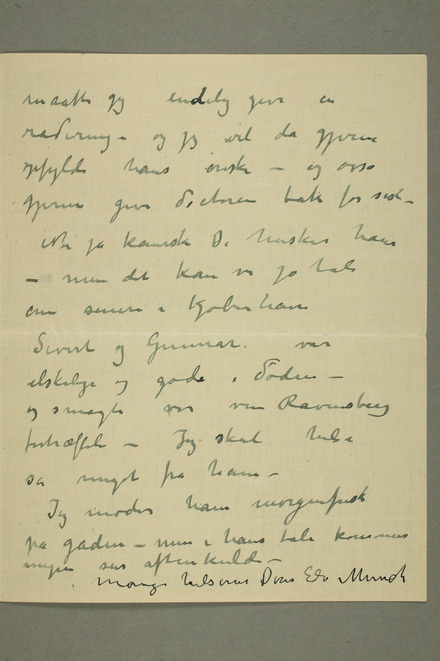 maatte jeg endelig give en
radering – og jeg vil da gjerne
opfylde hans ønske – og også
gjerne give doctoren tak for sidst –
Nu ja kanske De husker ham
– men det kan vi jo tale
om senere i Kjøbenhavn
Sivert og Gunnar. var
elskelige og gode i Døden –
og smagte vor ven Ravensberg
fortræffeli – Jeg skal hilse
så meget fra ham –
Jeg møder ham morgenfrisk
på gaden – men i hans tale kommer
ingen aftenkulde –
Mange hilsener Deres Edv Munch